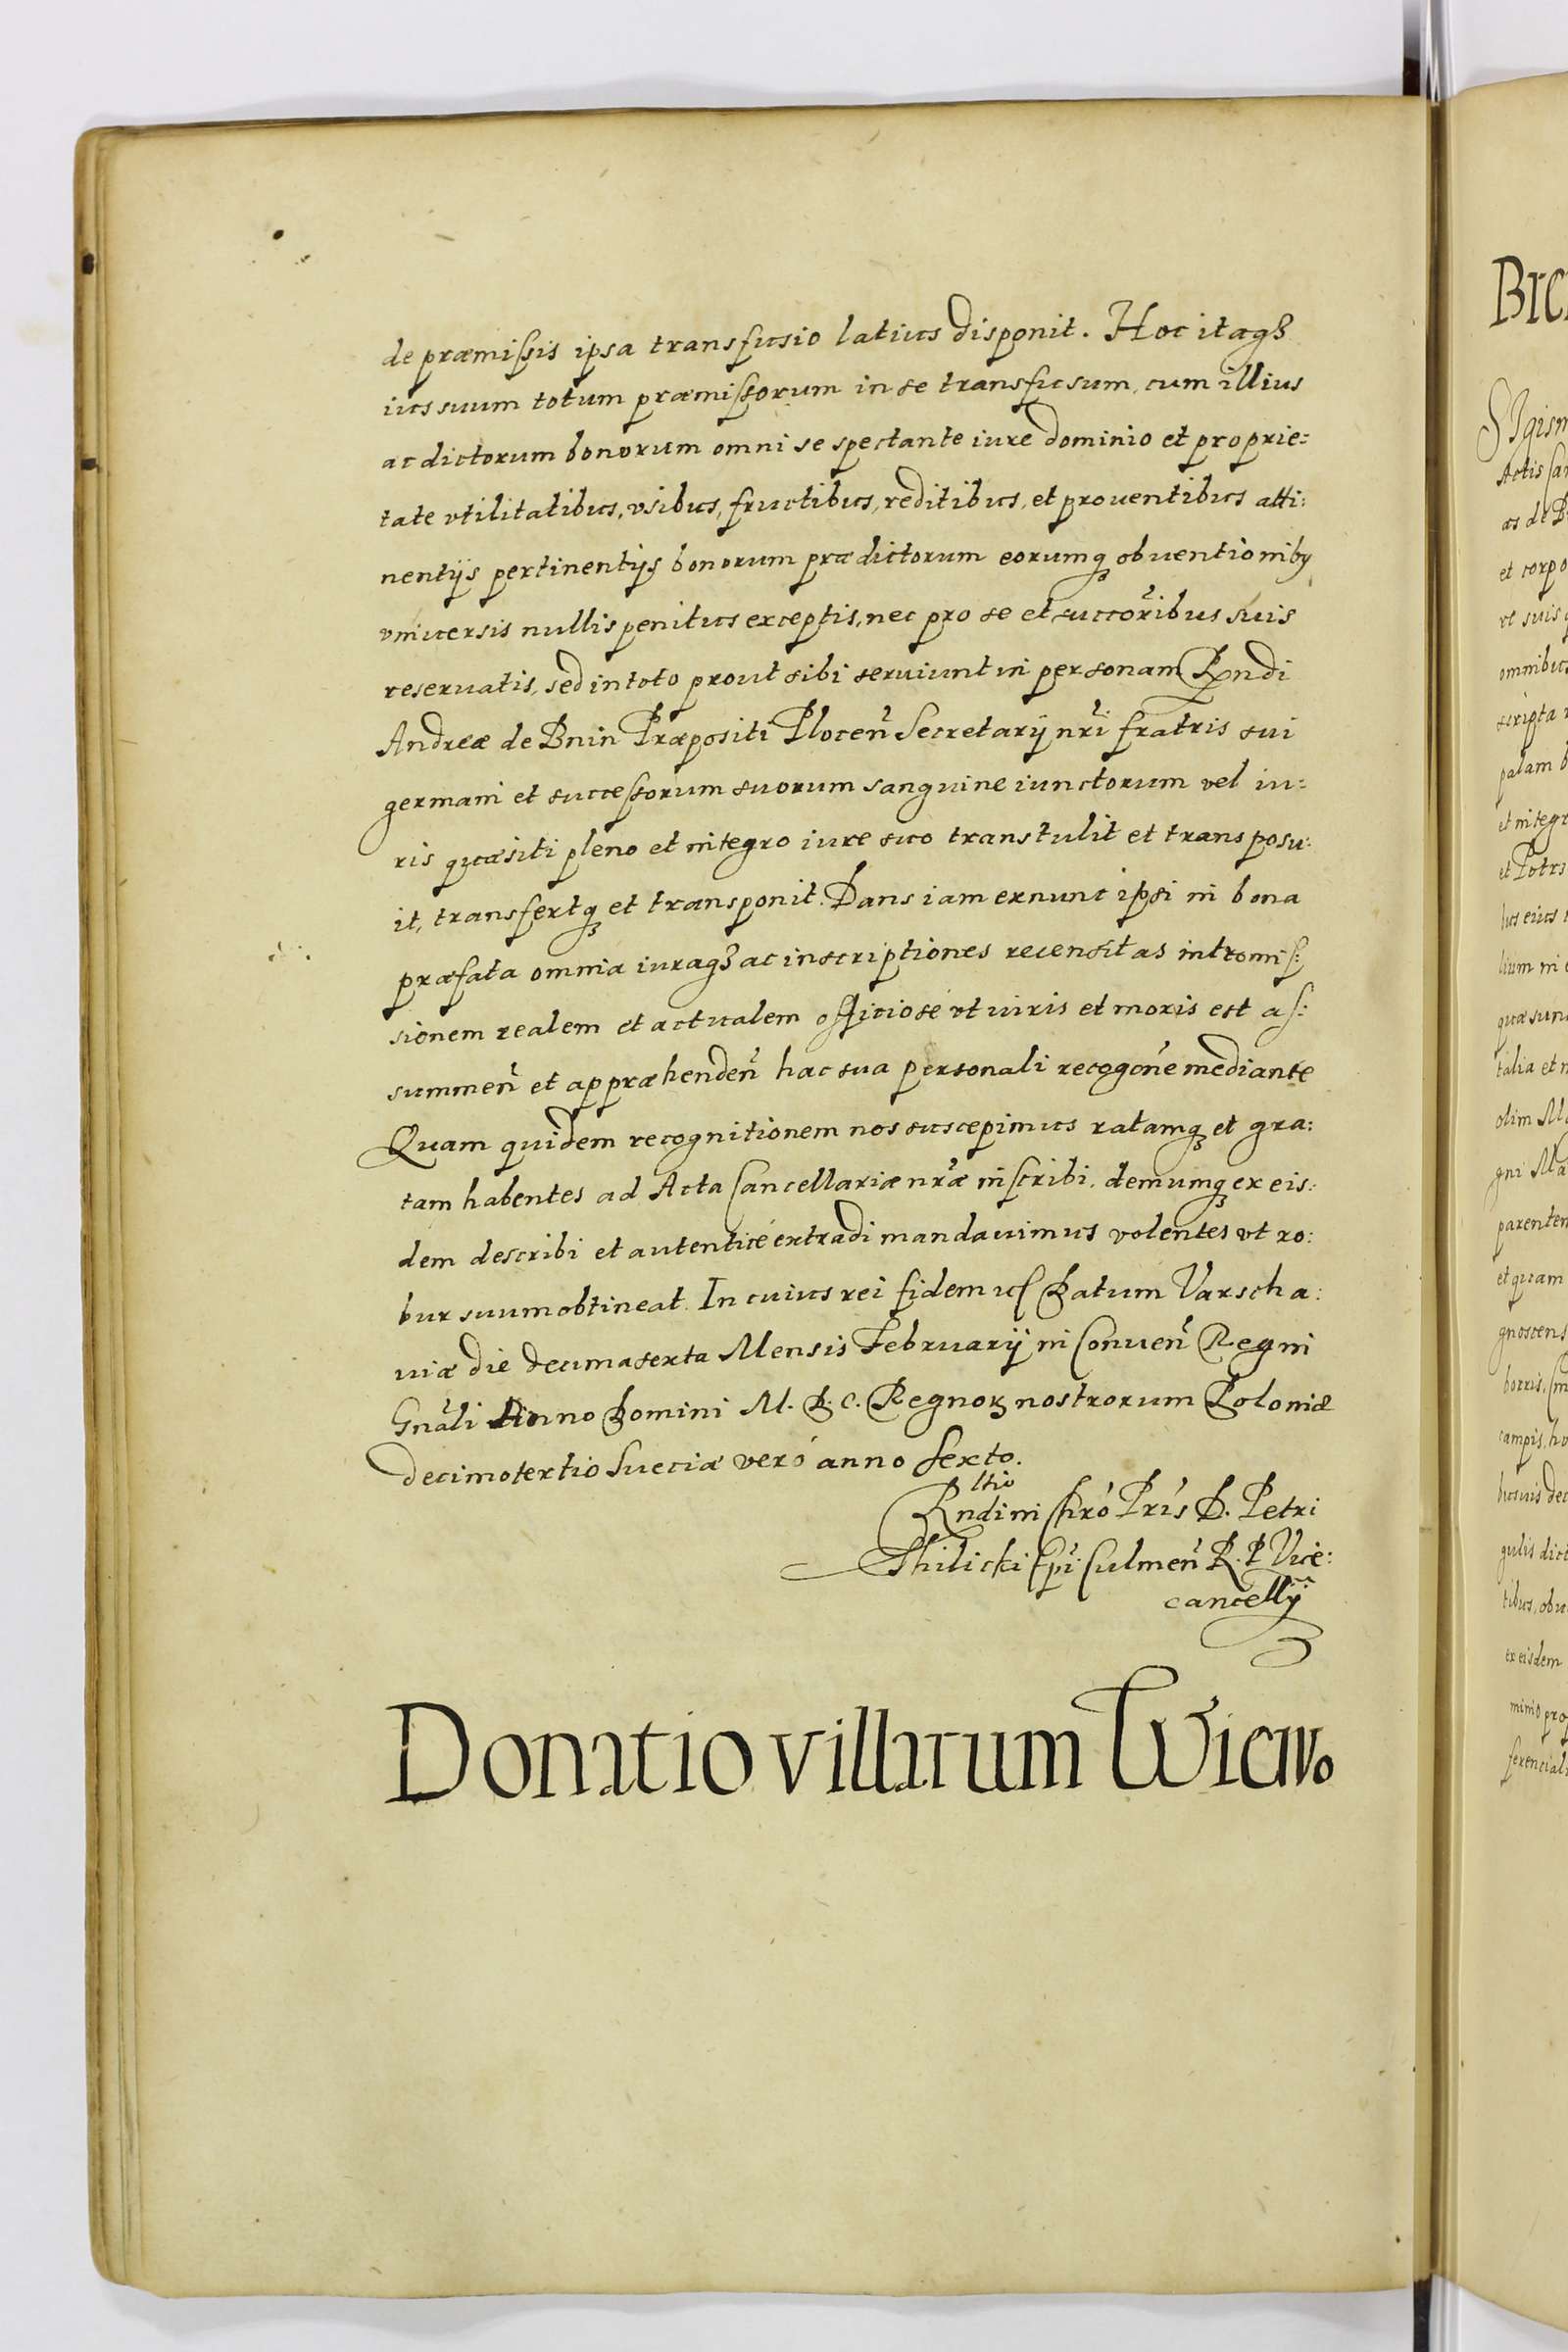 de præmissis ipsa transfusio latius disponit. Hoc itaq3
ius suum totum præmissorum in se transfusum, cum illius
ac dictorum bonorum omni se spectante iure dominio et proprie=
tate vtilitatibus, vsibus, fructibus, reditibus, et prouentibus atti:
nentijs pertinentijs bonorum prædictorum eorumq3 obuentionib9
vniuersis nullis penitus exceptis, nec pro se et succoribus suis
reseruatis, sed in toto prout sibi seruiunt in personam Rndi
Andreæ de Bnin Præpositi Plocen̄ Secretarij nr̄i fratris sui
germani et successorum suorum sanguine iunctorum vel iu=
ris quæsiti pleno et integro iure suo transtulit et transposu:
it, transfertq3 et transponit. Dans iam exnunc ipsi in bona
præfata omnia iuraq3 ac inscriptiones recensitas intromis:
sionem realem et actualem officiosé vt iuris et moris est as:
summen̄ et appræhenden̄ hac sua personali recogōne mediante
Quam quidem recognitionem nos suscepimus ratamq3 et gra:
tam habentes ad Acta Cancellariæ nr̄æ inscribi, demumq3 ex eis:
dem describi et autenticé extradi mandauimus volentes vt ro:
bur suum obtineat. In cuius rei fidem Datum Varscha:
uiæ die decimasexta Mensis Februarij in Conuen̄ Regni
Gnāli Anno Domini M. D. C. Regnor3 nostrorum Poloniæ
decimotertio Sueciæ veró anno sexto.
Rndi in Chrō Prīs D. Petri
Thilicki Epī Culmen̄ R. P. Vice:
cancellij
Donatio villarum Wicivo
BIC
SIgism
Actis Can
as de B
et corpo
omnibus
scripta
palam
et integr
lius eius
lium in
quæ sun
talia et
olim M
gni Ma
parenten
et quam
gnoscens
campis, ho
gulis dict
tibus, obu
ex eisdem
minio prop